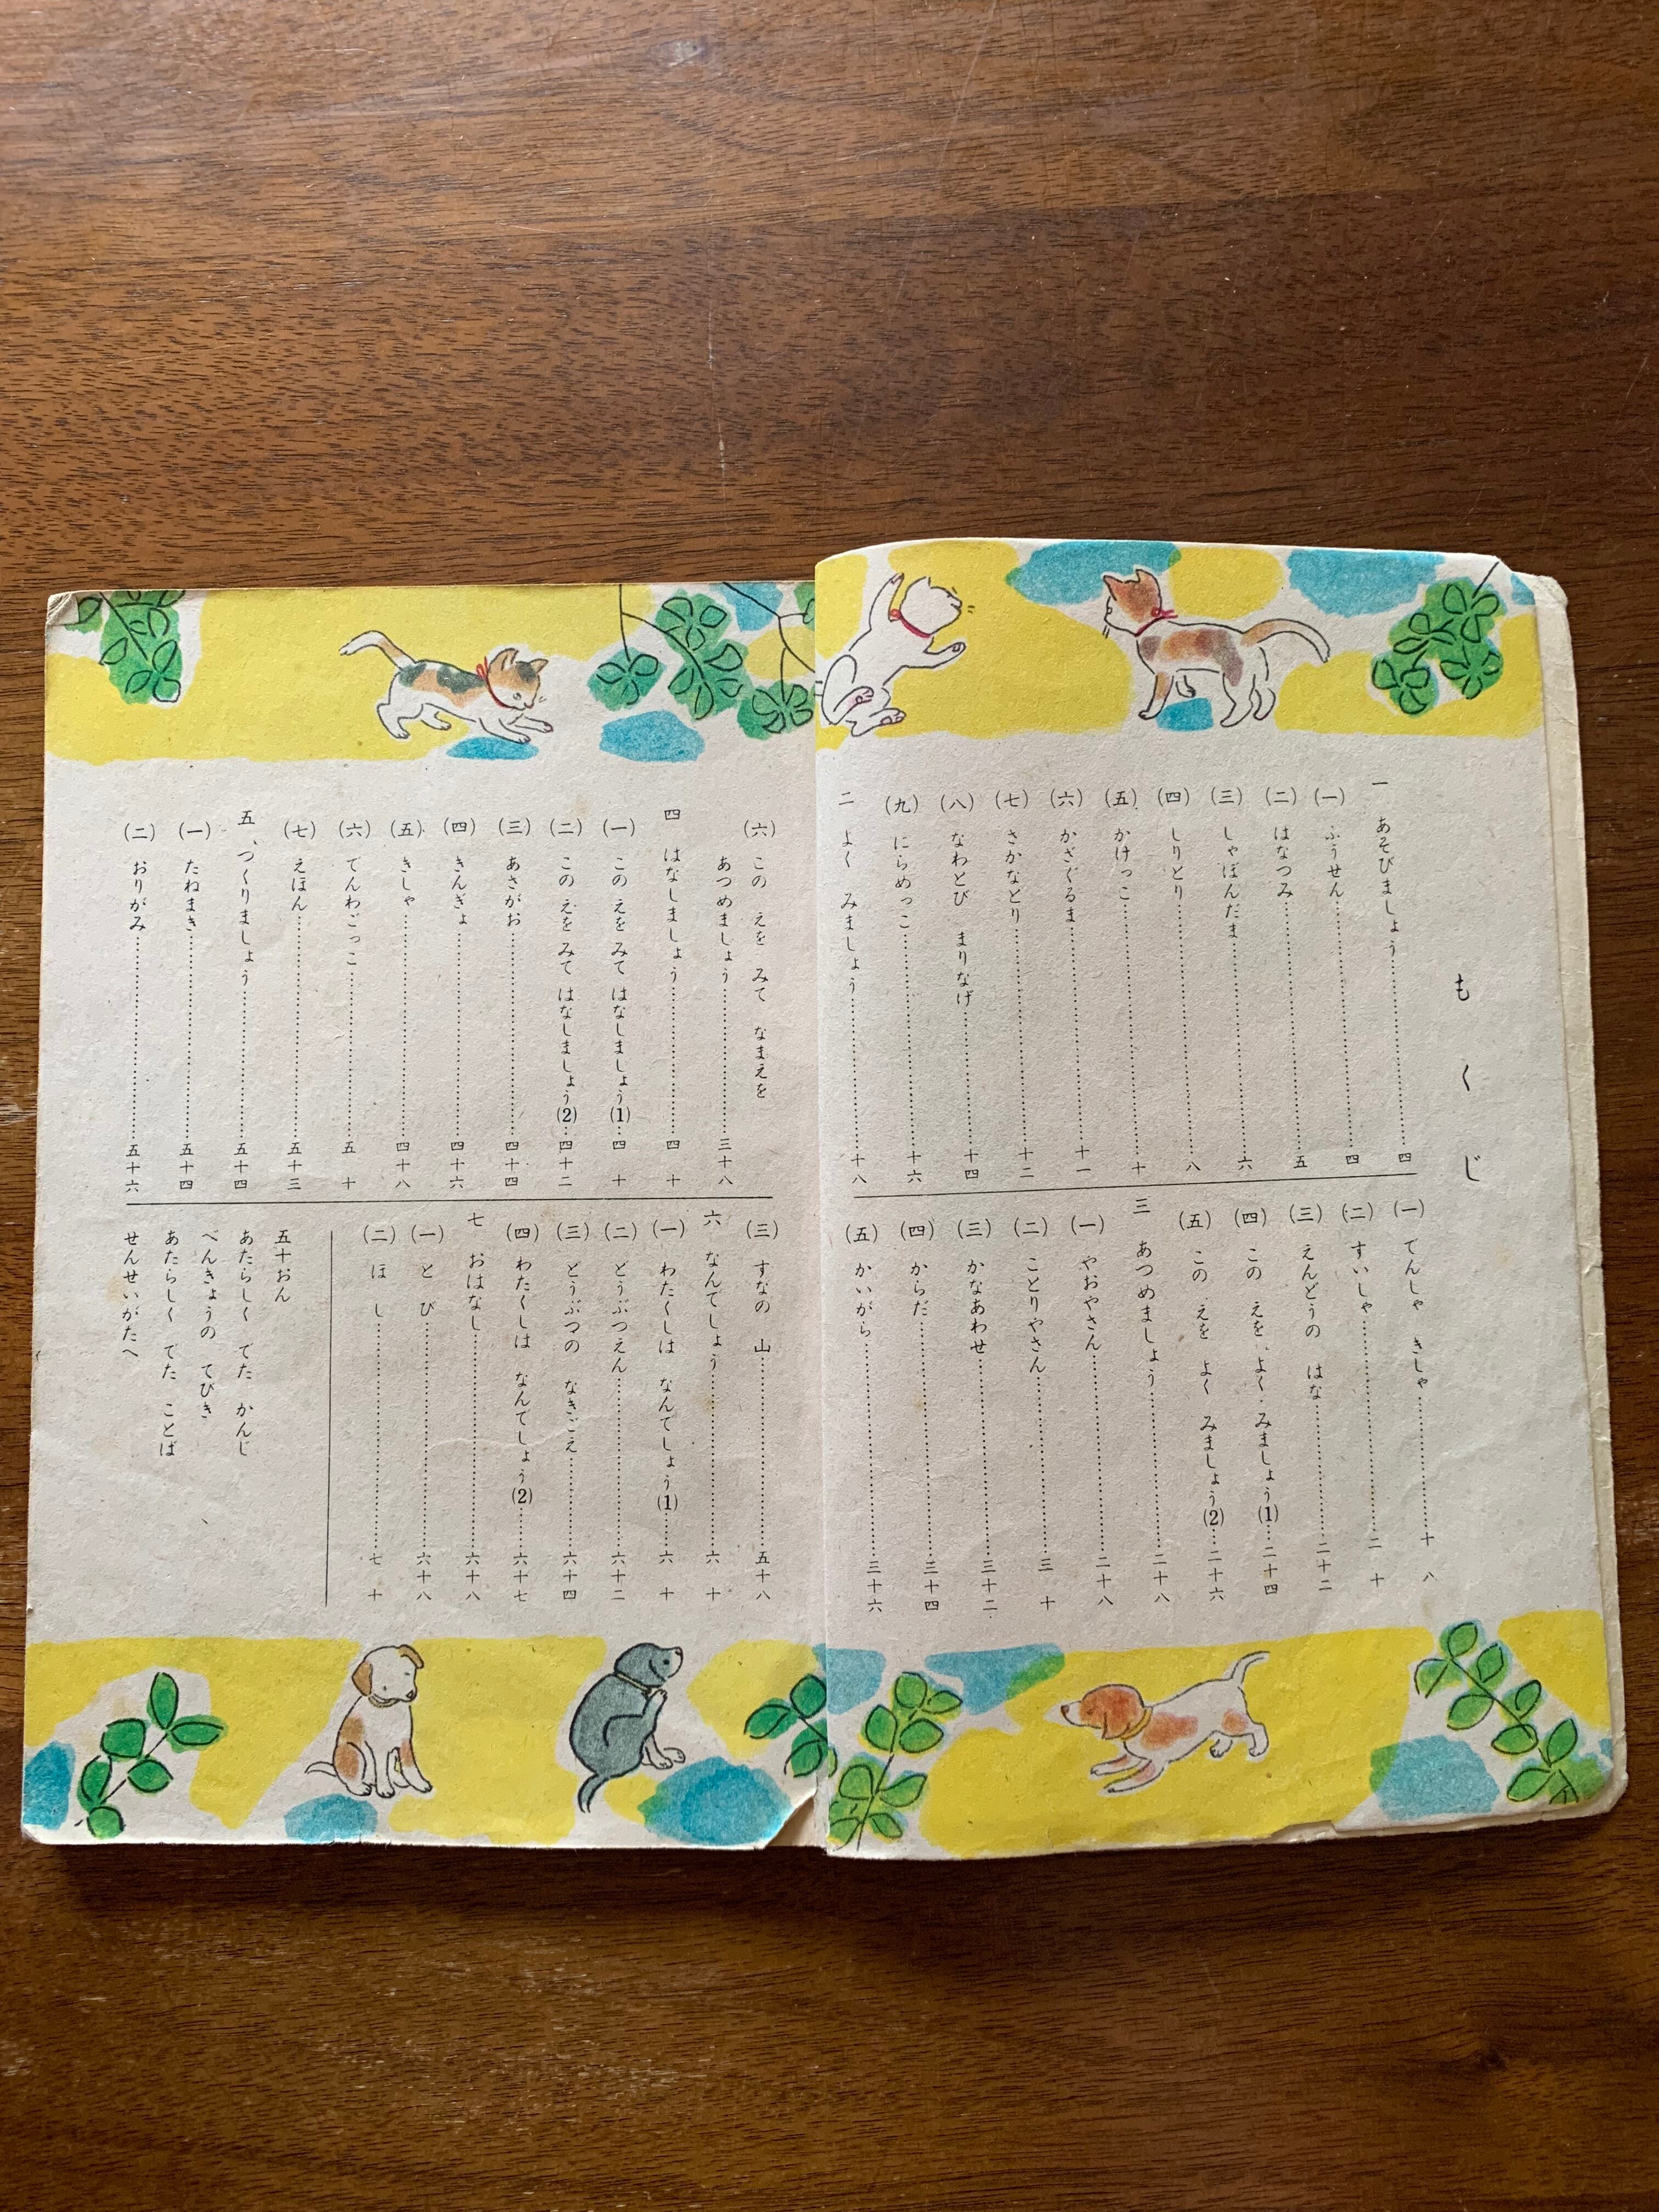 もくじ
一 あそびましょう……四
(一) ふうせん……四
(二) はなつみ……五
(三) しゃぼんだま……六
(四) しりとり……八
(五) かけっこ……十
(六) かざぐるま……十一
(七) さかなとり……十二
(八) なわとび まりなげ……十四
(九) にらめっこ……十六
二 よく みましょう……十八
(一) でんしゃ きしゃ……十八
(二) すいしゃ……二十
(三) えんどうの はな……二十二
(四) この えを よく みましょう(1)……二十四
(五) この えを よく みましょう(2)……二十六
三 あつめましょう……二十八
(一) やおやさん……二十八
(二) ことりやさん……三十
(三) かなあわせ……三十二
(四) からだ……三十四
(五) かいがら……三十六
(六) この えを みて なまえを
あつめましょう……三十八
四 はなしましょう……四十
(一) この えを みて はなしましょう(1)……四十
(二) この えを みて はなしましょう(2)……四十二
(三) あさがお……四十四
(四) きんぎょ……四十六
(五) きしゃ……四十八
(六) でんわごっこ……五十
(七) えほん……五十三
五、つくりましょう……五十四
(一) たねまき……五十四
(二) おりがみ……五十六
(三) すなの 山……五十八
六 なんでしょう……六十
(一) わたくしは なんでしょう(1)……六十
(二) どうぶつえん……六十二
(三) どうぶつの なきごえ……六十四
(四) わたくしは なんでしょう(2)……六十七
七 おはなし……六十八
(一) とび……六十八
(二) ほし……七十
五十おん
あたらしく でた かんじ
べんきょうの てびき
あたらしく でた ことば
せんせいがたへ